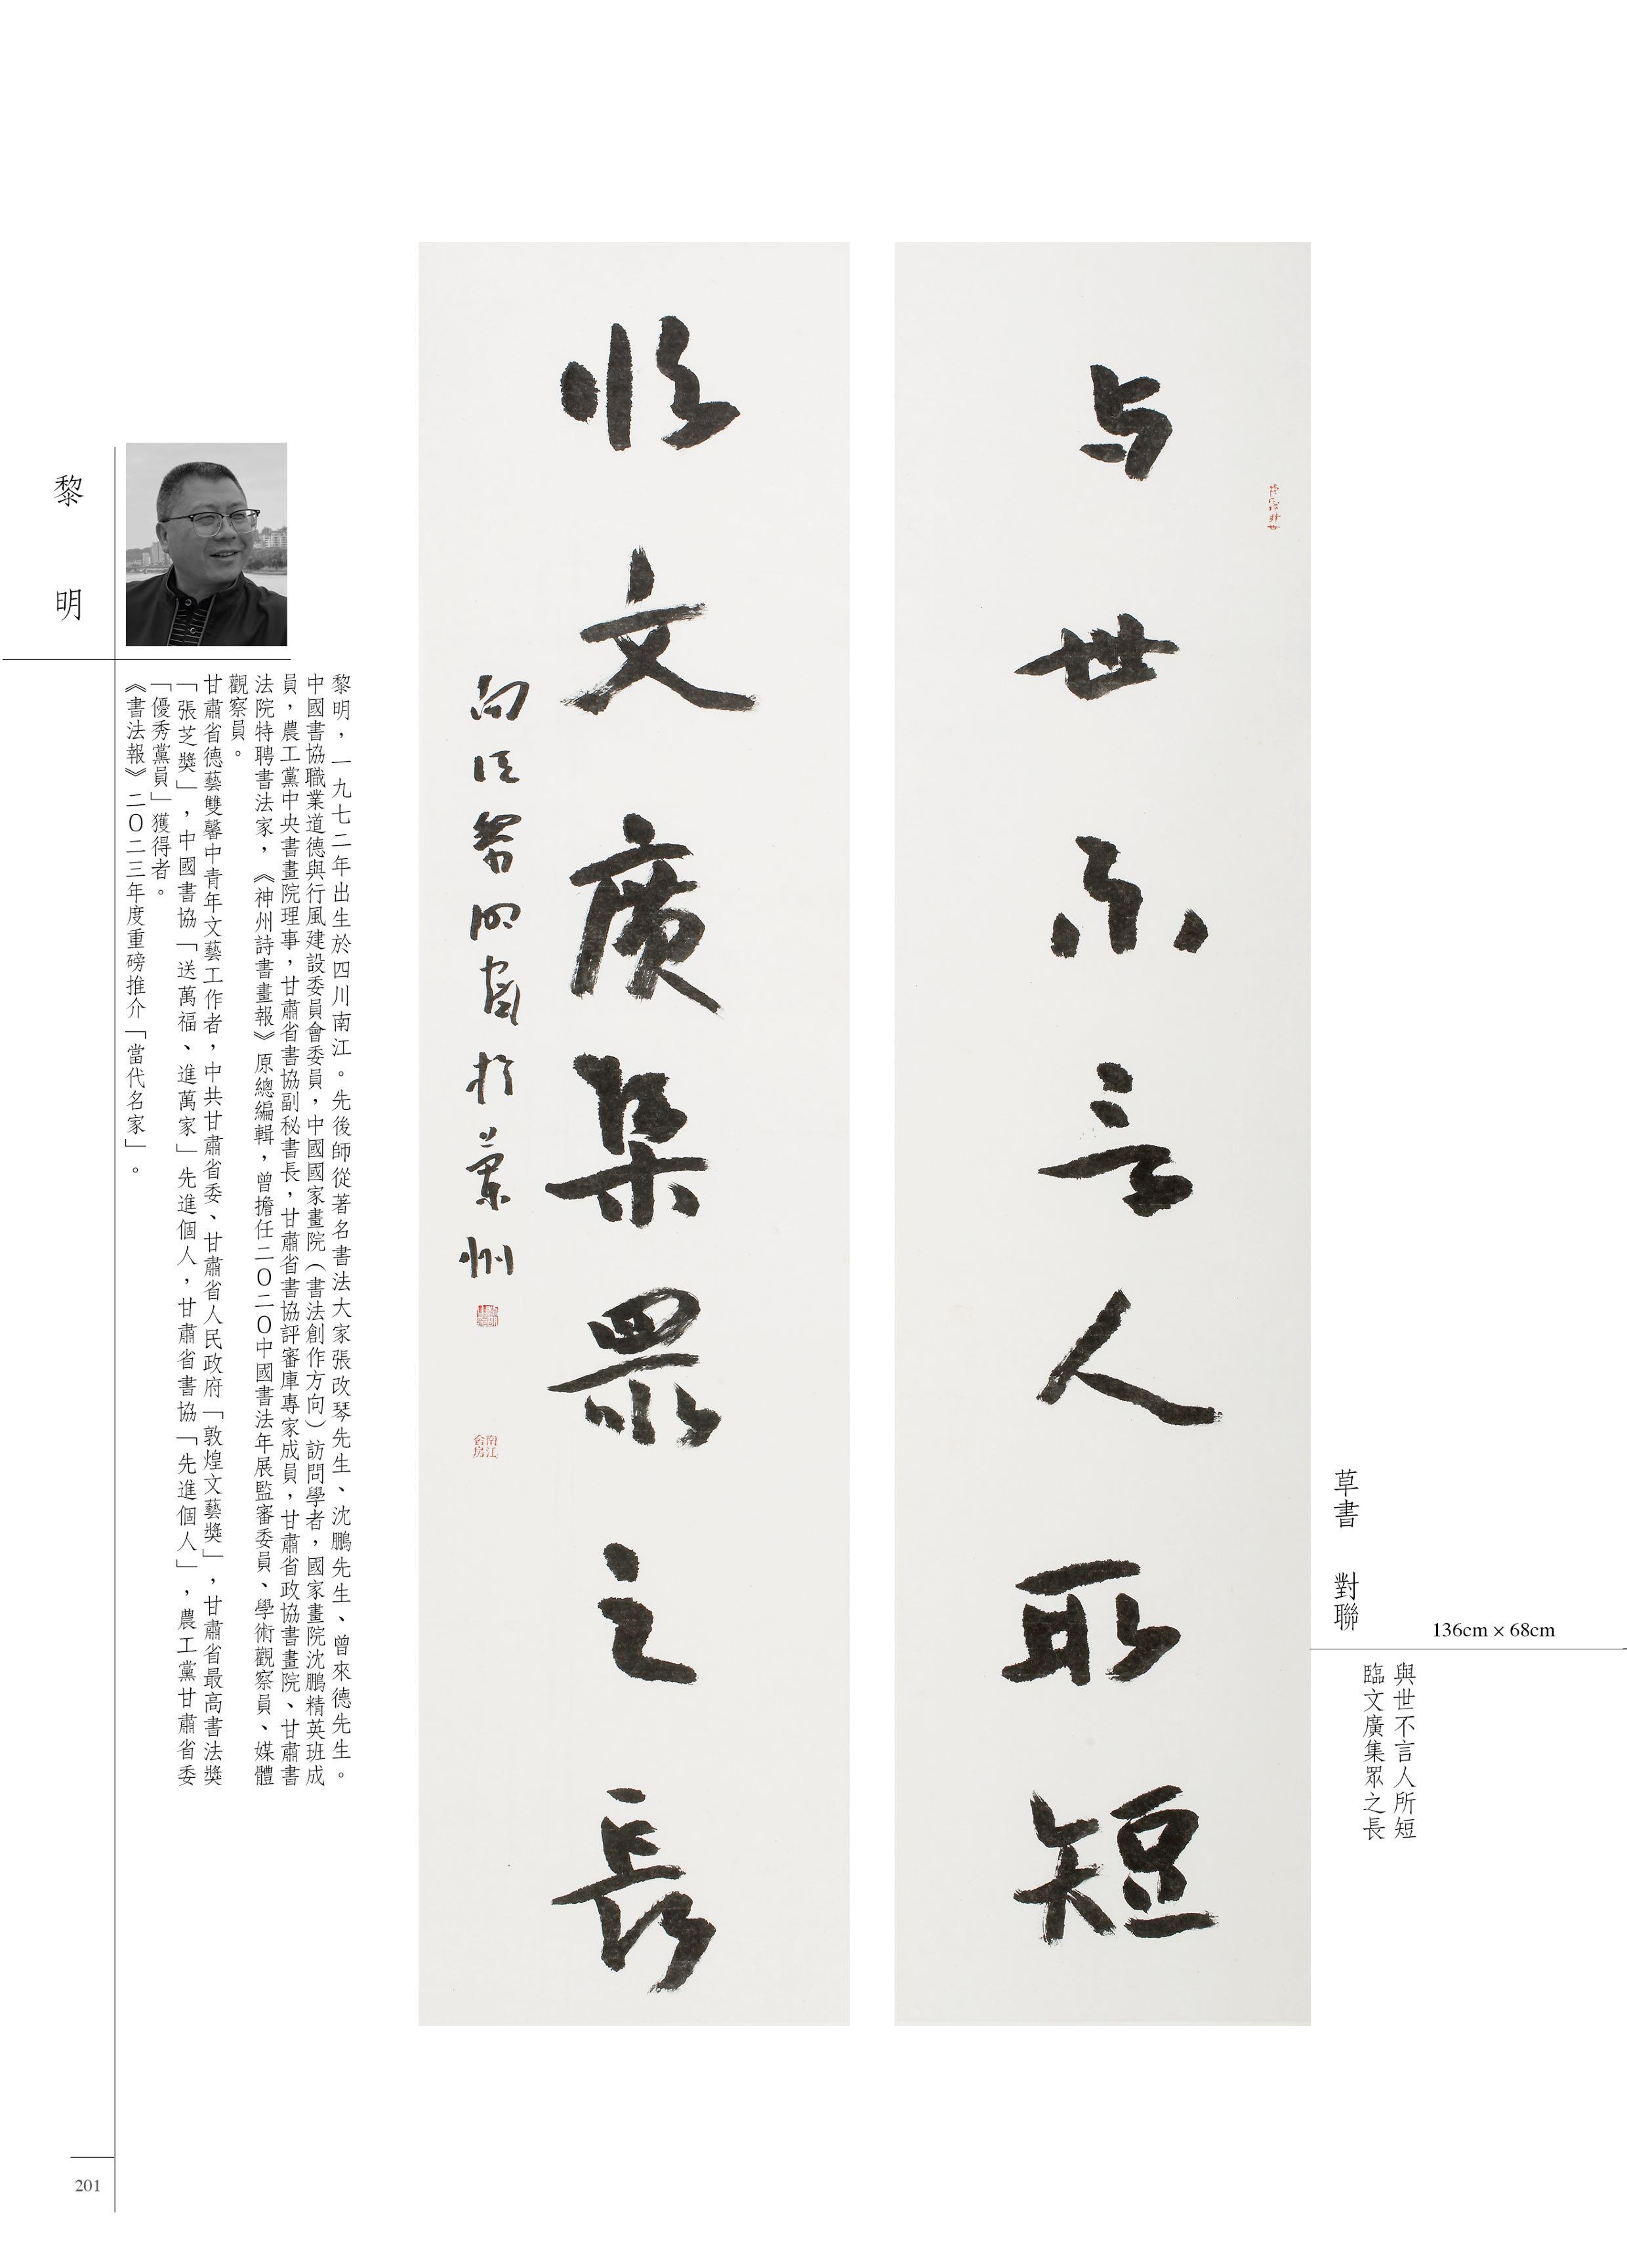 草書 對聯
136cm × 68cm
與世不言人所短
臨文廣集眾之長
与世不言人所短
临文廣集眾之長
黎明
於蘭州
南江
黎明
黎明，一九七二年出生於四川南江。先後師從著名書法大家張改琴先生、沈鵬先生、曾來德先生。
中國書協職業道德與行風建設委員會委員，中國國家畫院（書法創作方向）訪問學者，國家畫院沈鵬精英班成
員，農工黨中央書畫院理事，甘肅省書協副秘書長，甘肅省書協評審庫專家成員，甘肅省政協書畫院、甘肅書
法院特聘書法家，《神州詩書畫報》原總編輯，曾擔任二〇二〇中國書法年展監審委員、學術觀察員、媒體
觀察員。
甘肅省德藝雙馨中青年文藝工作者，中共甘肅省委、甘肅省人民政府「敦煌文藝獎」，甘肅省最高書法獎
「張芝獎」，中國書協「送萬福、進萬家」先進個人，甘肅省書協「先進個人」，農工黨甘肅省委
「優秀黨員」獲得者。
《書法報》二〇二三年度重磅推介「當代名家」。
201